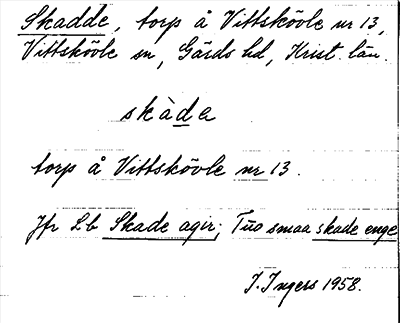 Skadde, torp å Vittskövle nr 13,
Vittskövle sn, Gärds hd, Krist. län.
skàdɐ
torp å Vittskövle nr 13.
Jfr Lb Skade agir; Tuo smaa skade enge
I. Ingers 1958.